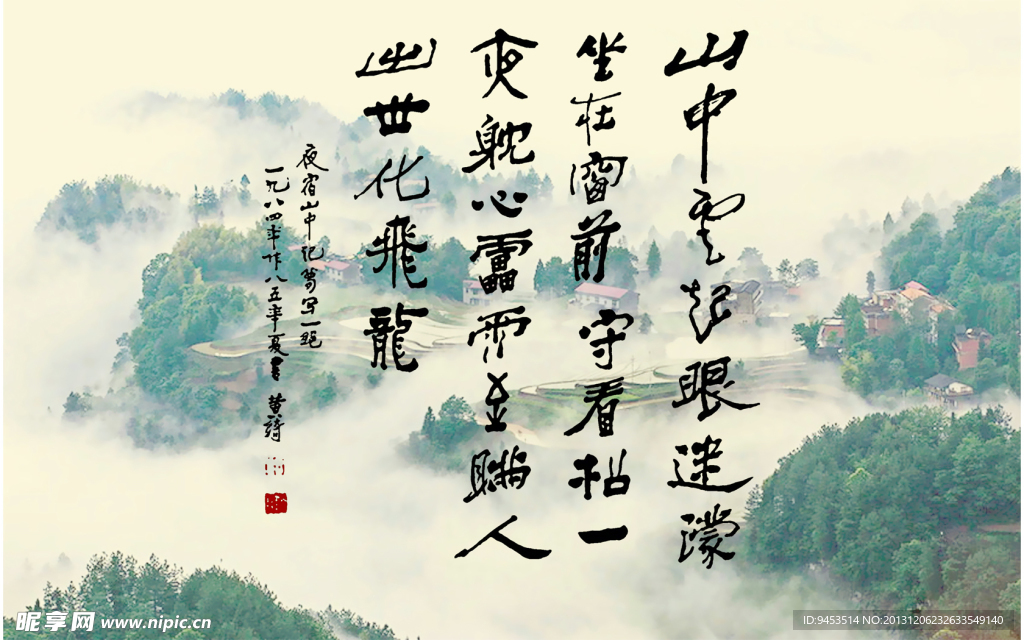 山中雲起眼迷濛
坐在窗前守看松一
夜躭心雷雨至瞞人
出世化飛龍
夜宿山中记夢写一绝
一九八四年作八五年夏書 黄綺
昵享网 www.nipic.cn
ID:9453514 NO:20131206232633549140